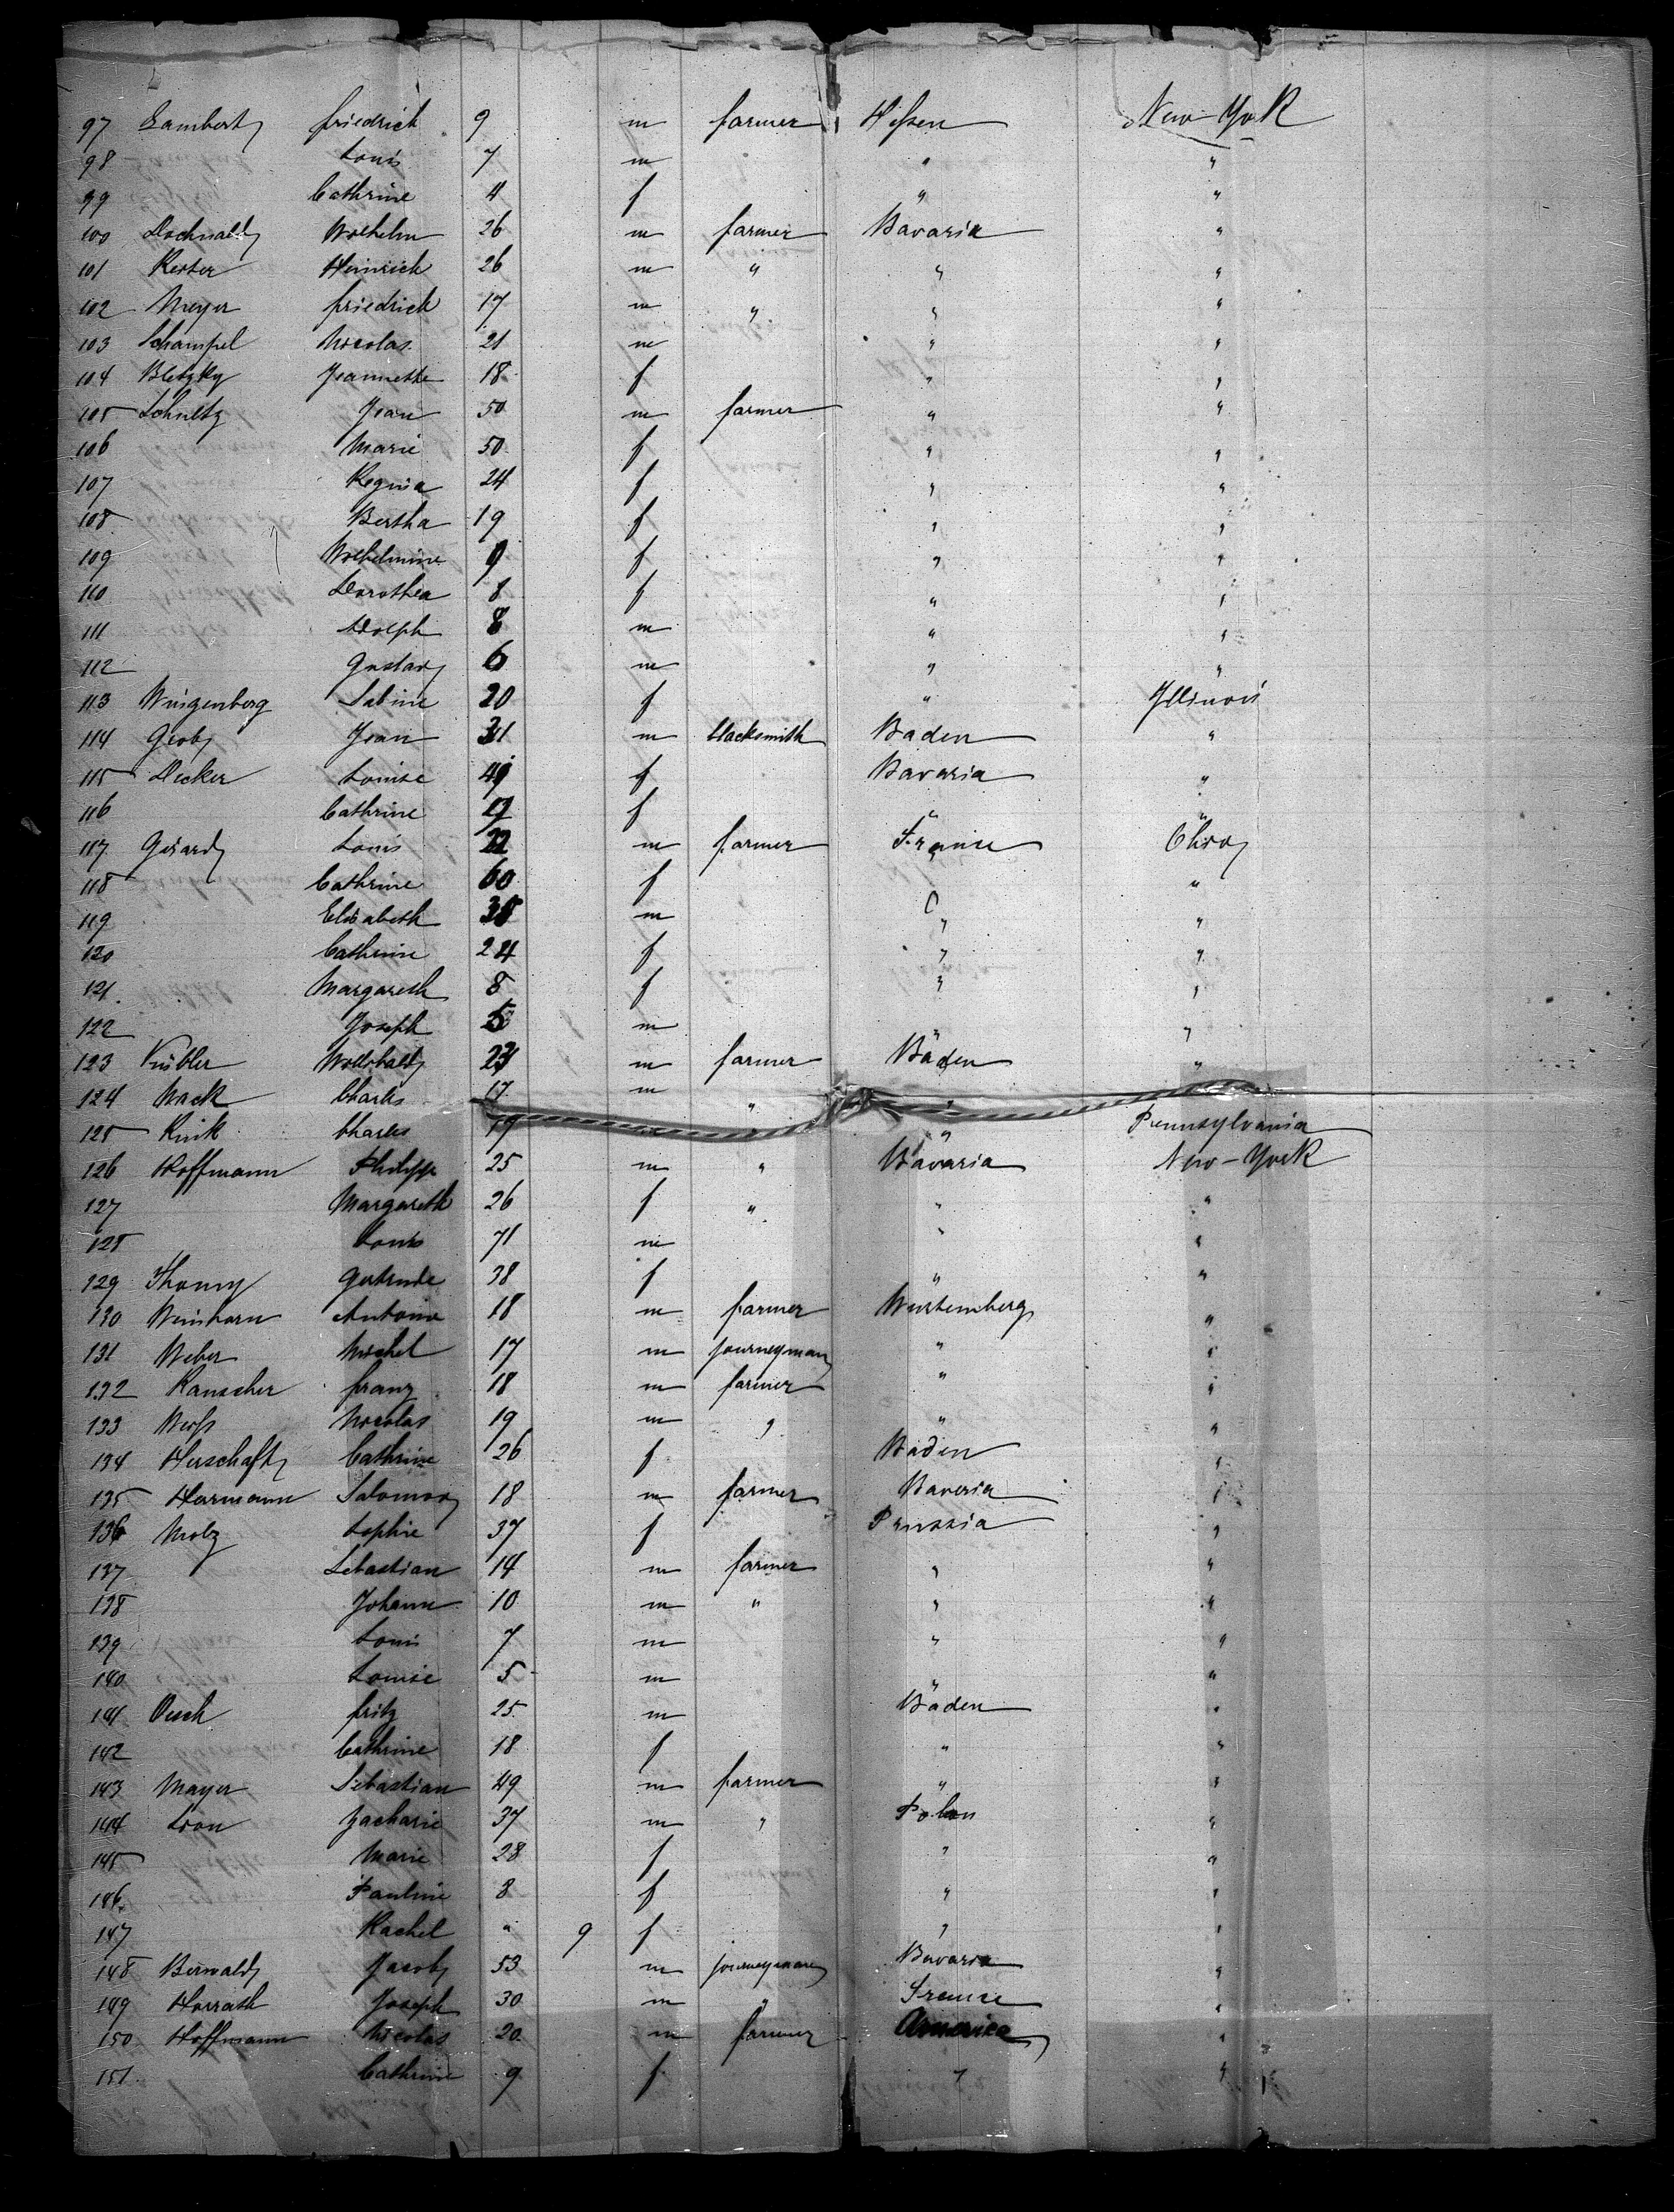 97 Lambert friedrich 9 m farmer Hessen New-York
98 Louis 7 m " "
99 Cathrine 4 f " "
100 Dochnald Wilhelm 26 m farmer Bavaria "
101 Kester Heinrich 26 m " " "
102 Meyer friedrich 17 m " " "
103 Schampel Nicolas 21 m " "
104 Jeannette 18 f " "
105 Schultz Jean 50 m farmer " "
106 Marie 50 f " "
107 Regina 24 f " "
108 Bertha 19 f " "
109 Wilhelmine 9 f " "
110 Dorothea 8 f " "
111 Adolph 8 m " "
112 Gustav 6 m " "
113 Wingenberg Sabine 20 f " Illinois
114 Jean 31 m blacksmith Baden "
115 Decker Louise 49 f Bavaria "
116 Cathrine 17 f " "
117 Gerard Louis 22 m farmer France Ohio
118 Cathrine 60 f " "
119 Elisabeth m " "
120 Catherine 24 f " "
121 Margareth 8 f " "
122 Joseph 5 m " "
123 Kübler 23 m farmer Baden "
124 Mack Charles 17 m " "
125 Charles 19 " Pennsylvania
126 Hoffmann Philipp 25 m " Bavaria New-York
127 Margareth 26 f " " "
128 Louis 71 m " "
129 Thomy Gertrude 38 f " "
130 Weinhorn Antoine 18 m farmer Wurtemberg "
131 Weber Michel 17 m journeyman " "
132 Rauscher franz 18 m farmer " "
133 Weiss Nicolas 19 m " " "
134 Herschaft Cathrine 26 f Baden "
135 Hermann Salomon 18 m farmer Baveria "
136 Molz Sophie 37 f Prussia "
137 Sebastian 14 m farmer " "
138 Johann 10 m " " "
139 Louis 7 m " "
140 Louise 5 m " "
141 Oesch fritz 25 m Baden "
142 Cathrine 18 f " "
143 Mayer Sebastian 49 m farmer " "
144 Lion Zacharie 37 m " Polen "
145 Marie 28 f " "
146 Pauline 8 f " "
147 Rachel " 9 f " "
148 Berwald Jacob 53 m journeyman Bavaria "
149 Horrath Joseph 30 m " France "
150 Hoffmann Nicolas 20 m farmer America "
151 Cathrine 9 f " "